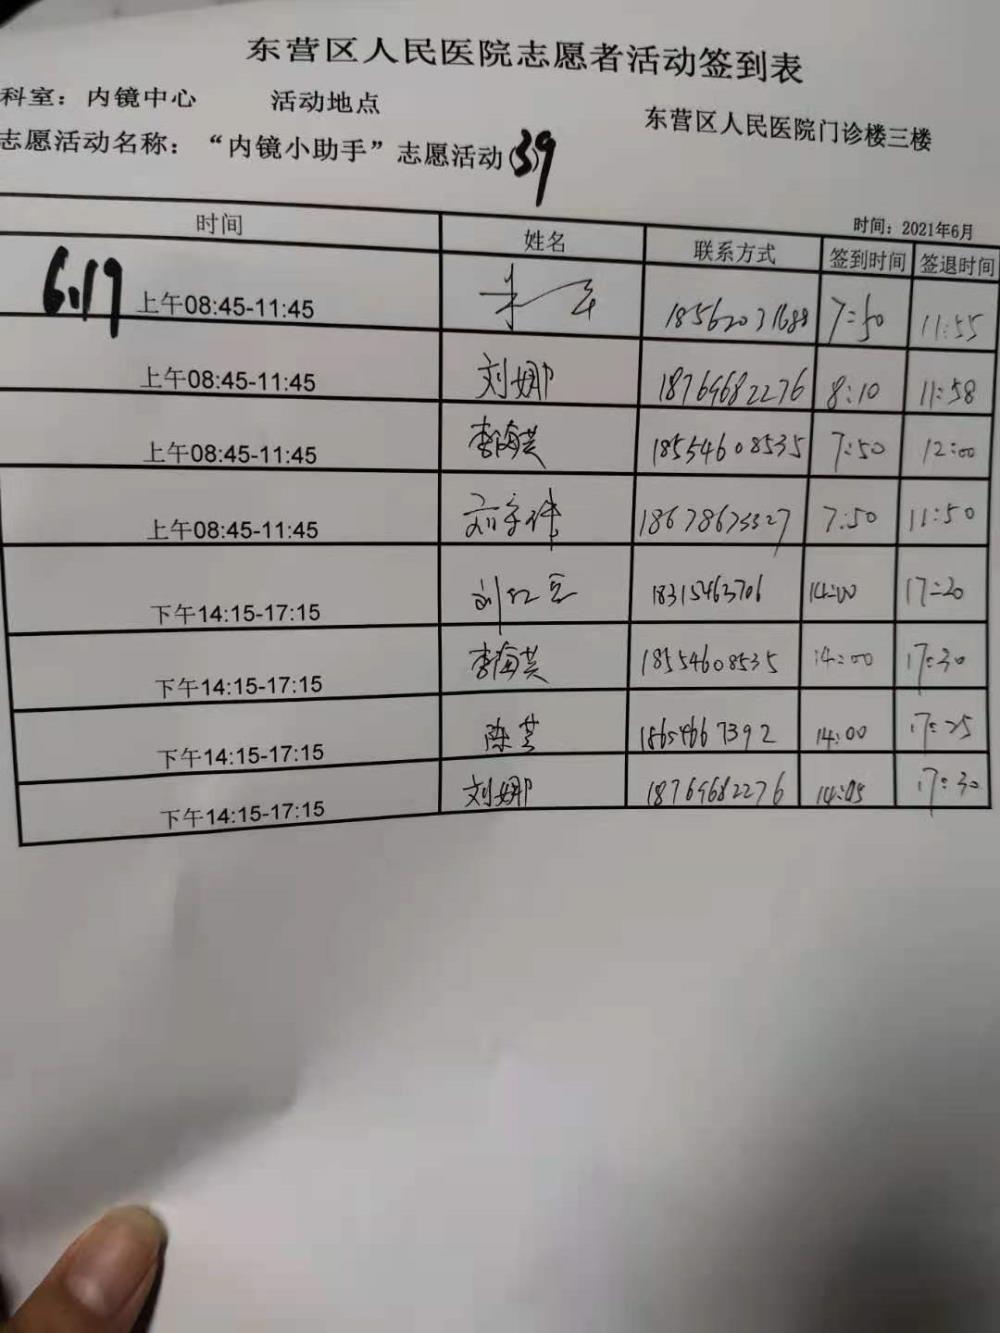 东营区人民医院志愿者活动签到表
科室：内镜中心 活动地点 东营区人民医院门诊楼三楼
志愿活动名称：“内镜小助手”志愿活动(39
时间：2021年6月
时间 姓名 联系方式 签到时间 签退时间
6.17 上午08:45-11:45 18562031688 7:50 11:55
上午08:45-11:45 刘娜 18769682276 8:10 11:58
上午08:45-11:45 李海英 18554608535 7:50 12:00
上午08:45-11:45 7:50 11:50
下午14:15-17:15 刘红豆 18315463706 14:00 17:20
下午14:15-17:15 李海英 18554608535 14:00 17:30
下午14:15-17:15 陈芸 18654667392 14:00 17:25
下午14:15-17:15 刘娜 18769682276 14:05 17:30